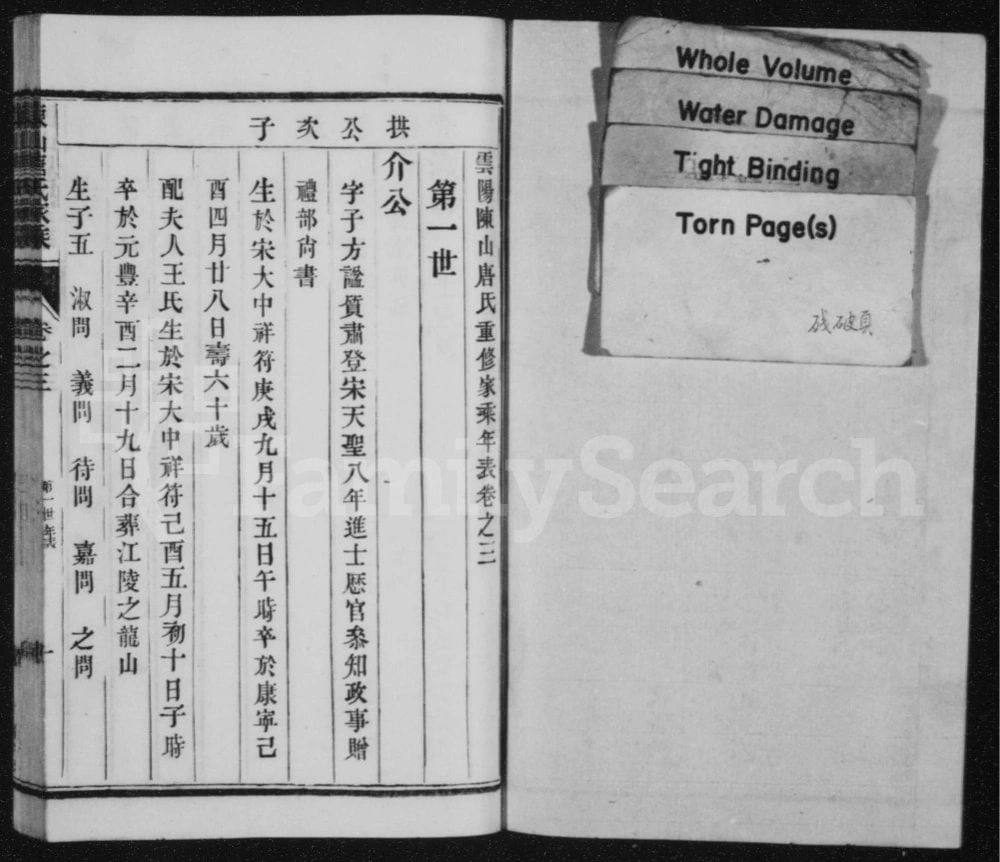 Whole Volume
Water Damage
Tight Binding
Torn Page(s)
残破頁
雲陽陳山唐氏重修家乘年表卷之三
第一世
拱公次子
介公
字子方諡質肅登宋天聖八年進士歷官叅知政事贈
禮部尚書
生於宋大中祥符庚戌九月十五日午時卒於康寧己
酉四月廿八日壽六十歲
配夫人王氏生於宋大中祥符己酉五月初十日子時
卒於元豐辛酉二月十九日合葬江陵之龍山
生子五 淑問 義問 待問 嘉問 之問
山唐氏家乘
卷之三
第一世年表
一
FamilySearch